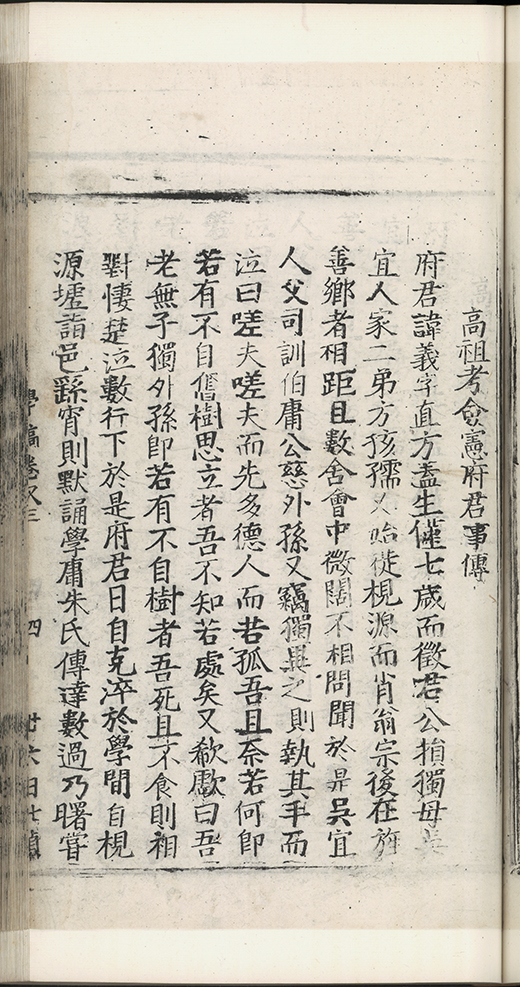 高祖考僉憲府君事傳
府君諱義字直方盖生僅七歲而徵君公捐獨母吳
宜人家二弟方孩孺又始徙梘源而肖翁宗後在旌
善鄉者相距且數舍會中微闊不相問聞於是吳宜
人父司訓伯庸公慈外孫又竊獨異之則執其手而
泣曰嗟夫嗟夫而先多德人而若孤吾且奈若何即
若有不自舊樹思立者吾不知若處矣又欷歔曰吾
老無子獨外孫即若有不自樹者吾死且不食則相
對悽楚泣數行下於是府君日自克淬於學間自梘
源墟詣邑繇宵則默誦學庸朱氏傳達數過乃曙甞
學稿卷之三 四 廿六日七